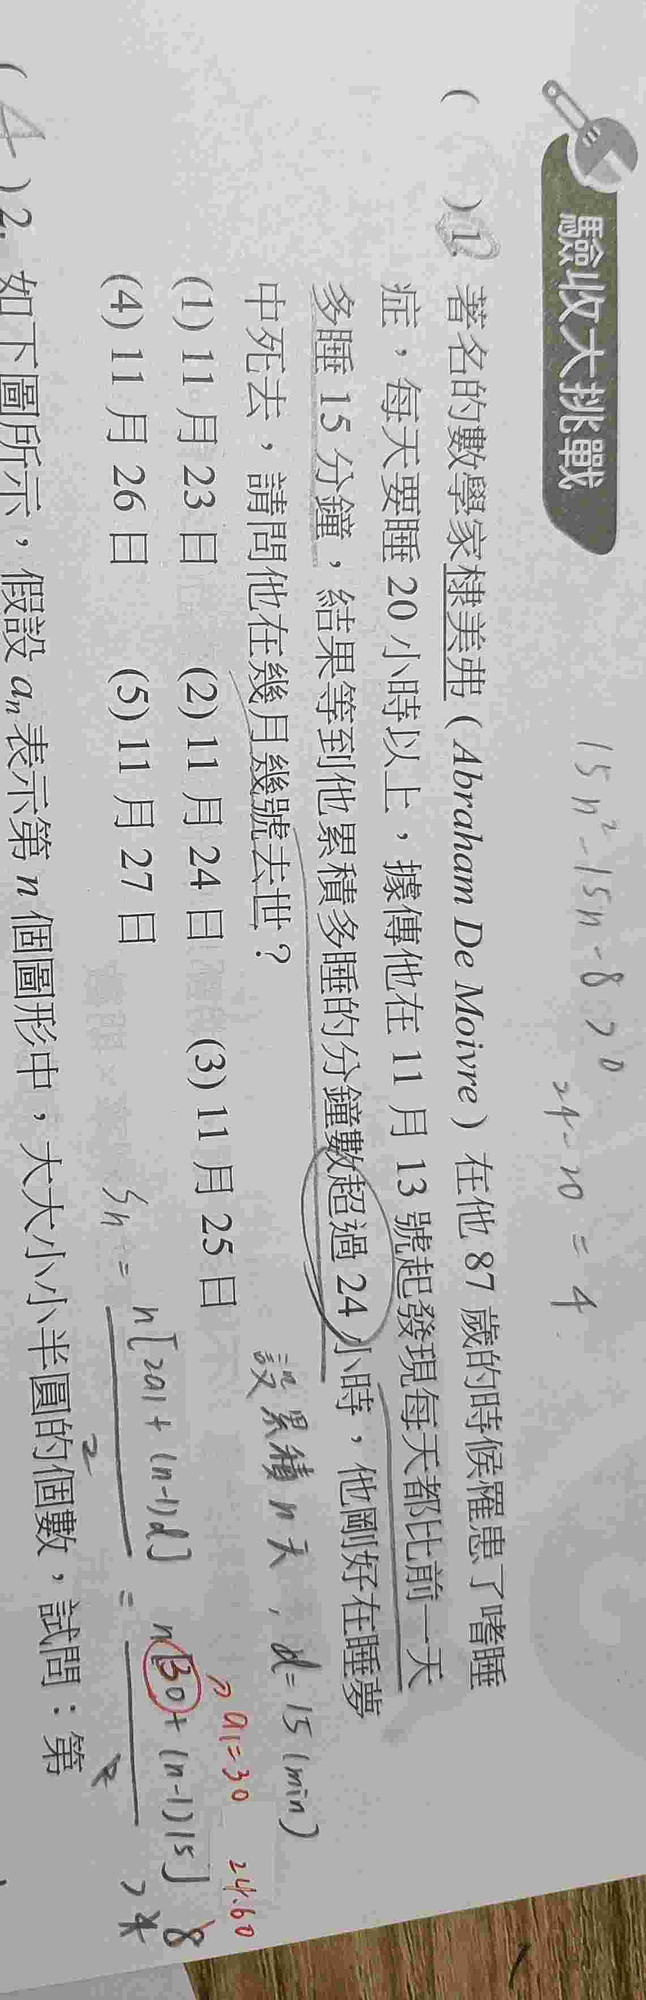 驗收大挑戰
15n²-15n-8>0
24-20=4
( )1. 著名的數學家棣美弗(Abraham De Moivre)在他87歲的時候罹患了嗜睡
症，每天要睡20小時以上，據傳他在11月13號起發現每天都比前一天
多睡15分鐘，結果等到他累積多睡的分鐘數超過24小時，他剛好在睡夢
中死去，請問他在幾月幾號去世？
設累積n天，d=15(min)
(1)11月23日 (2)11月24日 (3)11月25日
a1=30 24.60
(4)11月26日 (5)11月27日
Sn = n[2a1+(n-1)d] / 2 = n[30+(n-1)15] / > 8
(4)2. 如下圖所示，假設an表示第n個圖形中，大大小小半圓的個數，試問：第